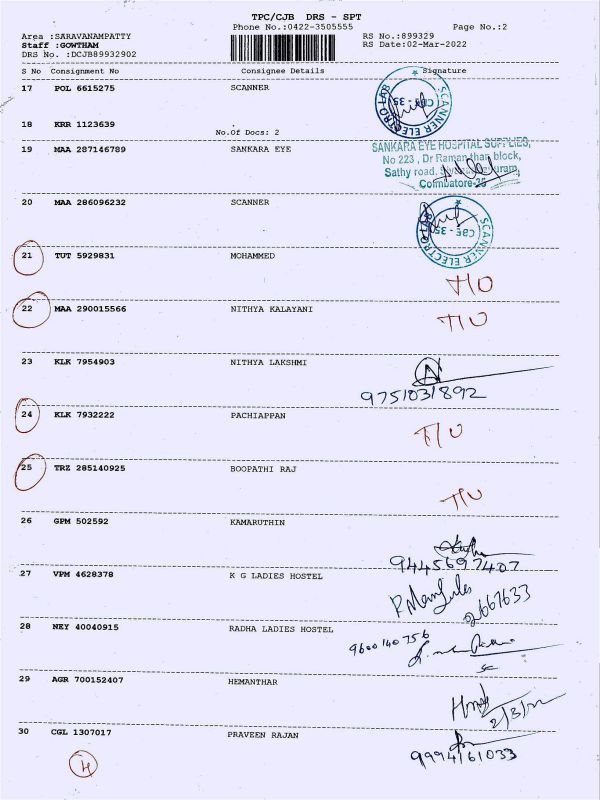 TPC/CJB DRS - SPT
Phone No.:0422-3505555 Page No.:2
Area :SARAVANAMPATTY RS No.:899329
Staff :GOWTHAM RS Date:02-Mar-2022
DRS No. :DCJB89932902
S No Consignment No Consignee Details Signature
17 POL 6615275 SCANNER
SCANNER ELECTRO LAB
CBE - 35
18 KRR 1123639
No.Of Docs: 2
19 MAA 287146789 SANKARA EYE
SANKARA EYE HOSPITAL SUPPLIES,
No 223 , Dr Ramanathan block,
Sathy road,
Coimbatore-35
20 MAA 286096232 SCANNER
SCANNER ELECTRO LAB
CBE - 35
21 TUT 5929831 MOHAMMED
T/U
22 MAA 290015566 NITHYA KALAYANI
T/U
23 KLK 7954903 NITHYA LAKSHMI
9751031892
24 KLK 7932222 PACHIAPPAN
T/U
25 TRZ 285140925 BOOPATHI RAJ
T/U
26 GPM 502592 KAMARUTHIN
9445697407
27 VPM 4628378 K G LADIES HOSTEL
2667633
28 NEY 40040915 RADHA LADIES HOSTEL
9600140756
29 AGR 700152407 HEMANTHAR
2/3/22
30 CGL 1307017 PRAVEEN RAJAN
9994161033
4